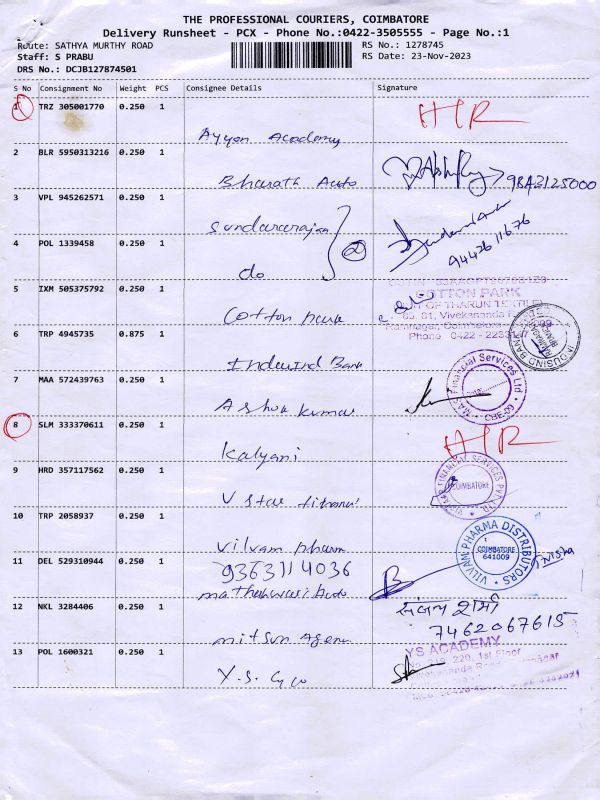 THE PROFESSIONAL COURIERS, COIMBATORE
Delivery Runsheet - PCX - Phone No.:0422-3505555 - Page No.:1
Route: SATHYA MURTHY ROAD RS No.: 1278745
Staff: S PRABU RS Date: 23-Nov-2023
DRS No.: DCJB127874501
S No Consignment No Weight PCS Consignee Details Signature
1 TRZ 305001770 0.250 1 HR
Ayyan Academy
2 BLR 5950313216 0.250 1
Bharath Auto 98A3125000
3 VPL 945262571 0.250 1
Sundararajan 2
4 POL 1339458 0.250 1 9442611676
do
5 IXM 505375792 0.250 1
COTTON PARK
UNIT OF THARUN TEXTILE
Cotton park 65, 81, Vivekananda
Ramnagar, Coimbatore
6 TRP 4945735 0.875 1 Phone 0422 -
INDUSIND BANK
Indusind Bank
7 MAA 572439763 0.250 1 Financial Services Ltd
CBE-09
Ashok kumar
8 SLM 333370611 0.250 1 HR
Kalyani
9 HRD 357117562 0.250 1 FINANCIAL SERVICES PVT LTD
COIMBATORE
V star
10 TRP 2058937 0.250 1
Vilvam pharm VILVAM PHARMA DISTRIBUTORS
COIMBATORE
641009
11 DEL 529310944 0.250 1
9363114036
Auto
12 NKL 3284406 0.250 1
7462067615
mitsun
13 POL 1600321 0.250 1 YS ACADEMY
220, 1st Floor
Y.S.